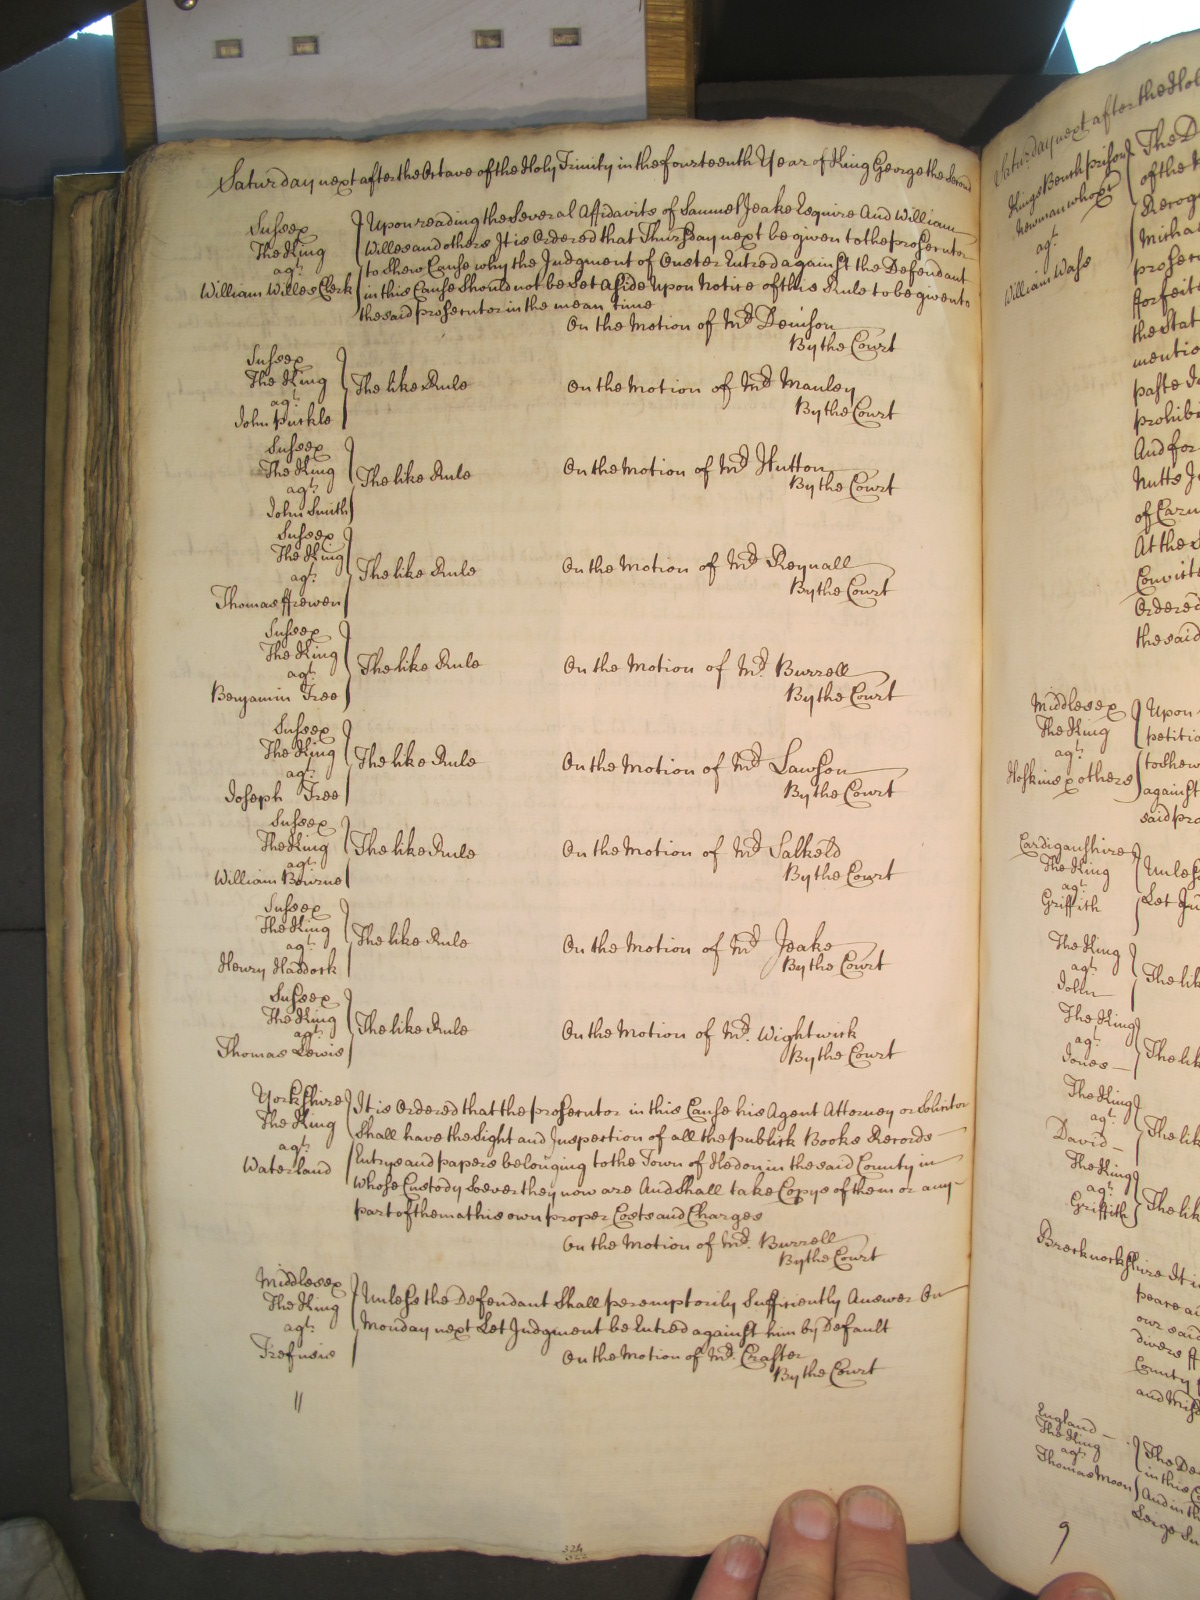 Saturday next after the Octave of the Holy Trinity in the fourteenth Year of King George the Second
Sussex
The King
agt.
William Willes Clerk
Upon reading the Several Affidavits of Samuel Jeake Esquire And William
Willes and others It is Ordered that Thursday next be given to the prosecutor
to Shew Cause why the Judgment of Ouster Entred against the Defendant
in this Cause Should not be Set aside Upon Notice of this Rule to be given to
the said prosecutor in the mean time
On the Motion of Mr. Denison
By the Court
Sussex
The King
agt.
John Puckle
The like Rule
On the Motion of Mr. Manley
By the Court
Sussex
The King
agt.
John Smith
The like Rule
On the Motion of Mr. Hutton
By the Court
Sussex
The King
agt.
Thomas ffrewen
The like Rule
On the Motion of Mr. Reynall
By the Court
Sussex
The King
agt.
Benjamin Tree
The like Rule
On the Motion of Mr. Burrell
By the Court
Sussex
The King
agt.
Joseph Tree
The like Rule
On the Motion of Mr. Lawson
By the Court
Sussex
The King
agt.
William Bourne
The like Rule
On the Motion of Mr. Salkeld
By the Court
Sussex
The King
agt.
Henry Haddock
The like Rule
On the Motion of Mr. Jeake
By the Court
Sussex
The King
agt.
Thomas Lewis
The like Rule
On the Motion of Mr. Wightwick
By the Court
Yorkshire
The King
agt.
Waterland
It is Ordered that the prosecutor in this Cause his Agent Attorney or Solicitor
Shall have the Sight and Inspection of all the publick Books Records
Entrys and papers belonging to the Town of Hedon in the said County in
whose Custody Soever they now are And Shall take Copys of them or any
part of them at his own proper Costs and Charges
On the Motion of Mr. Burrell
By the Court
Middlesex
The King
agt.
Trefusis
Unless the Defendant Shall peremptorily Sufficiently Answer On
Monday next Let Judgment be Entred against him by Default
On the Motion of Mr. Crafter
By the Court
Saturday next after the Hol
Kings Bench prison
Newman whospr
agt.
William Wass
The D
of the
Recog
Micha
prosec
fforfeit
the Stat
mentio
past
prohibi
And for
Nutts
of Carn
At the
Convict
Ordered
the said
Middlesex
The King
agt.
Hoskins & others
Upon
petitio
to shew
against
said pro
Cardiganshire
The King
agt.
Griffith
Unless
Let Ju
The King
agt.
John
The lik
The King
agt.
Jones
The lik
The King
agt.
David
The lik
The King
agt.
Griffith
The lik
Brecknockshire It i
peace a
our said
divers ff
County
and Mis
England
The King
agt.
Thomas Moon
The De
in this C
And in th
Large Su
9